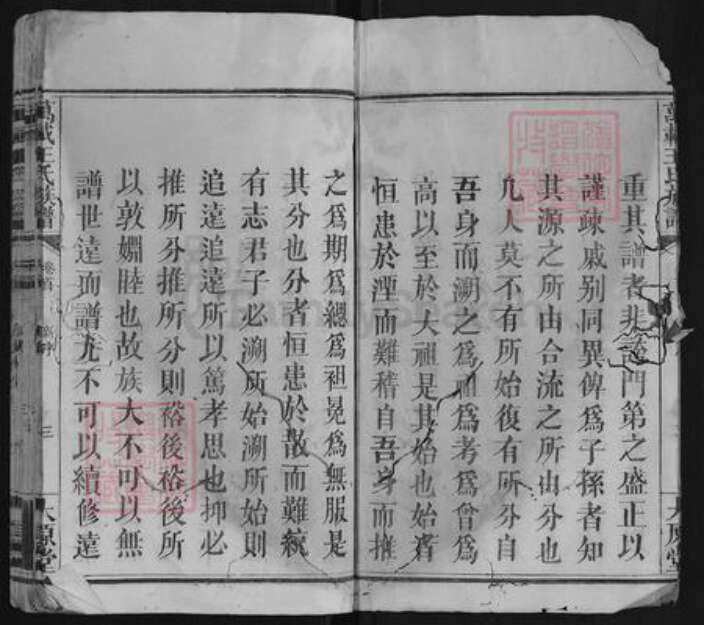 重其譜者非誇門第之盛正以
謹疎戚别同異俾爲子孫者知
其源之所由合流之所由分也
凡人莫不有所始復有所分自
吾身而溯之爲祖爲考爲曾爲
高以至於大祖是其始也始者
恒患於湮而難稽自吾身而推
之爲期爲緦爲袒免爲無服是
其分也分者恒患於散而難統
有志君子必溯所始溯所始則
追遠追遠所以篤孝思也抑必
推所分推所分則裕後裕後所
以敦婣睦也故族大不可以無
譜世遠而譜尤不可以續修遠
萬載王氏族譜
卷首
三
太原堂